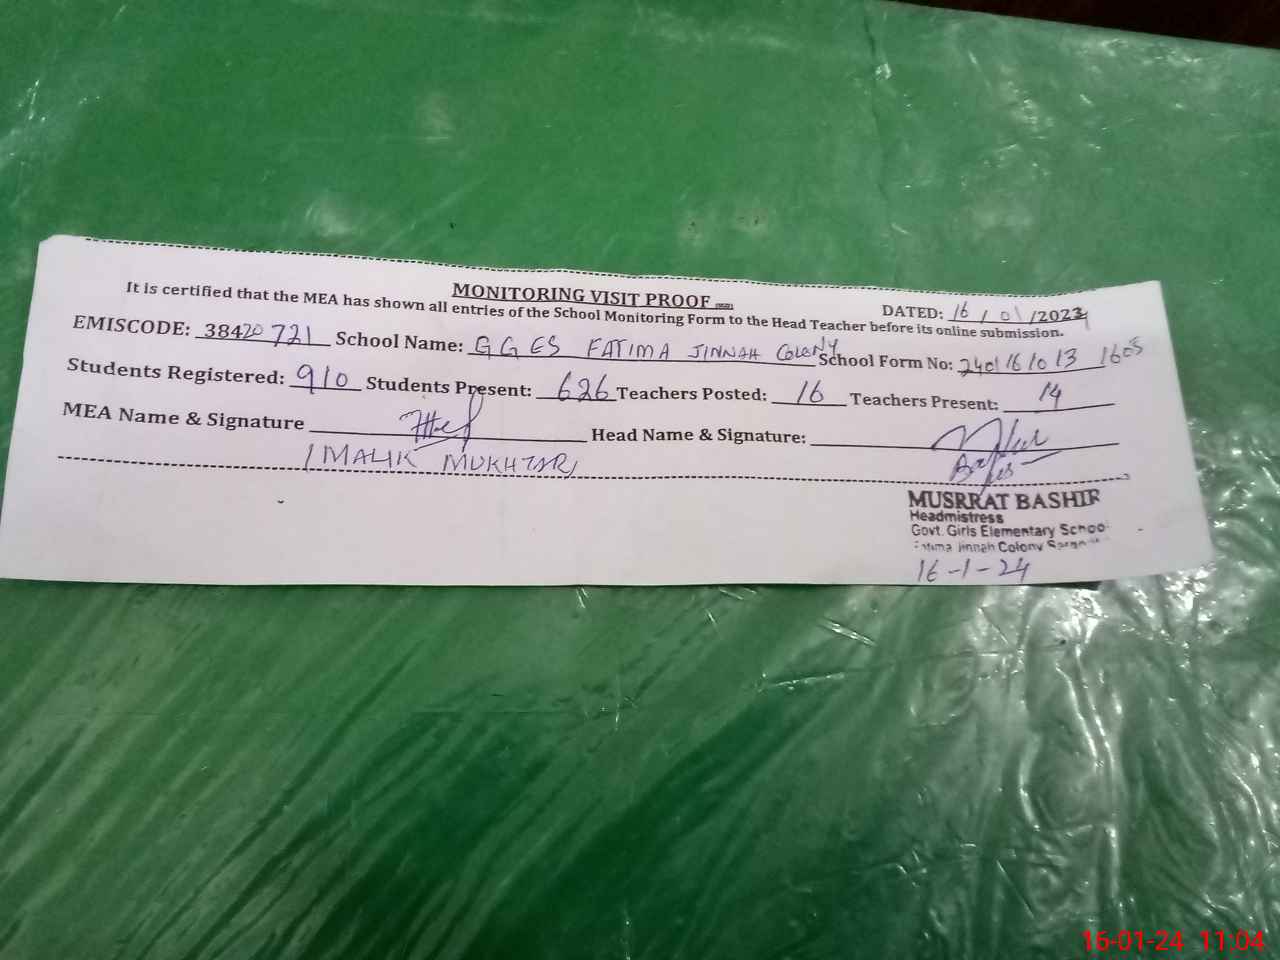 MONITORING VISIT PROOF
DATED: 16 / 01 /2024
It is certified that the MEA has shown all entries of the School Monitoring Form to the Head Teacher before its online submission.
EMISCODE: 38420721 School Name: G G ES FATIMA JINNAH COLONY School Form No:
Students Registered: 910 Students Present: 626 Teachers Posted: 16 Teachers Present: 14
MEA Name & Signature Head Name & Signature:
(MALIK MUKHTAR)
MUSRRAT BASHIR
Headmistress
Govt. Girls Elementary School
Fatima Jinnah Colony
16-1-24
16-01-24 11:04